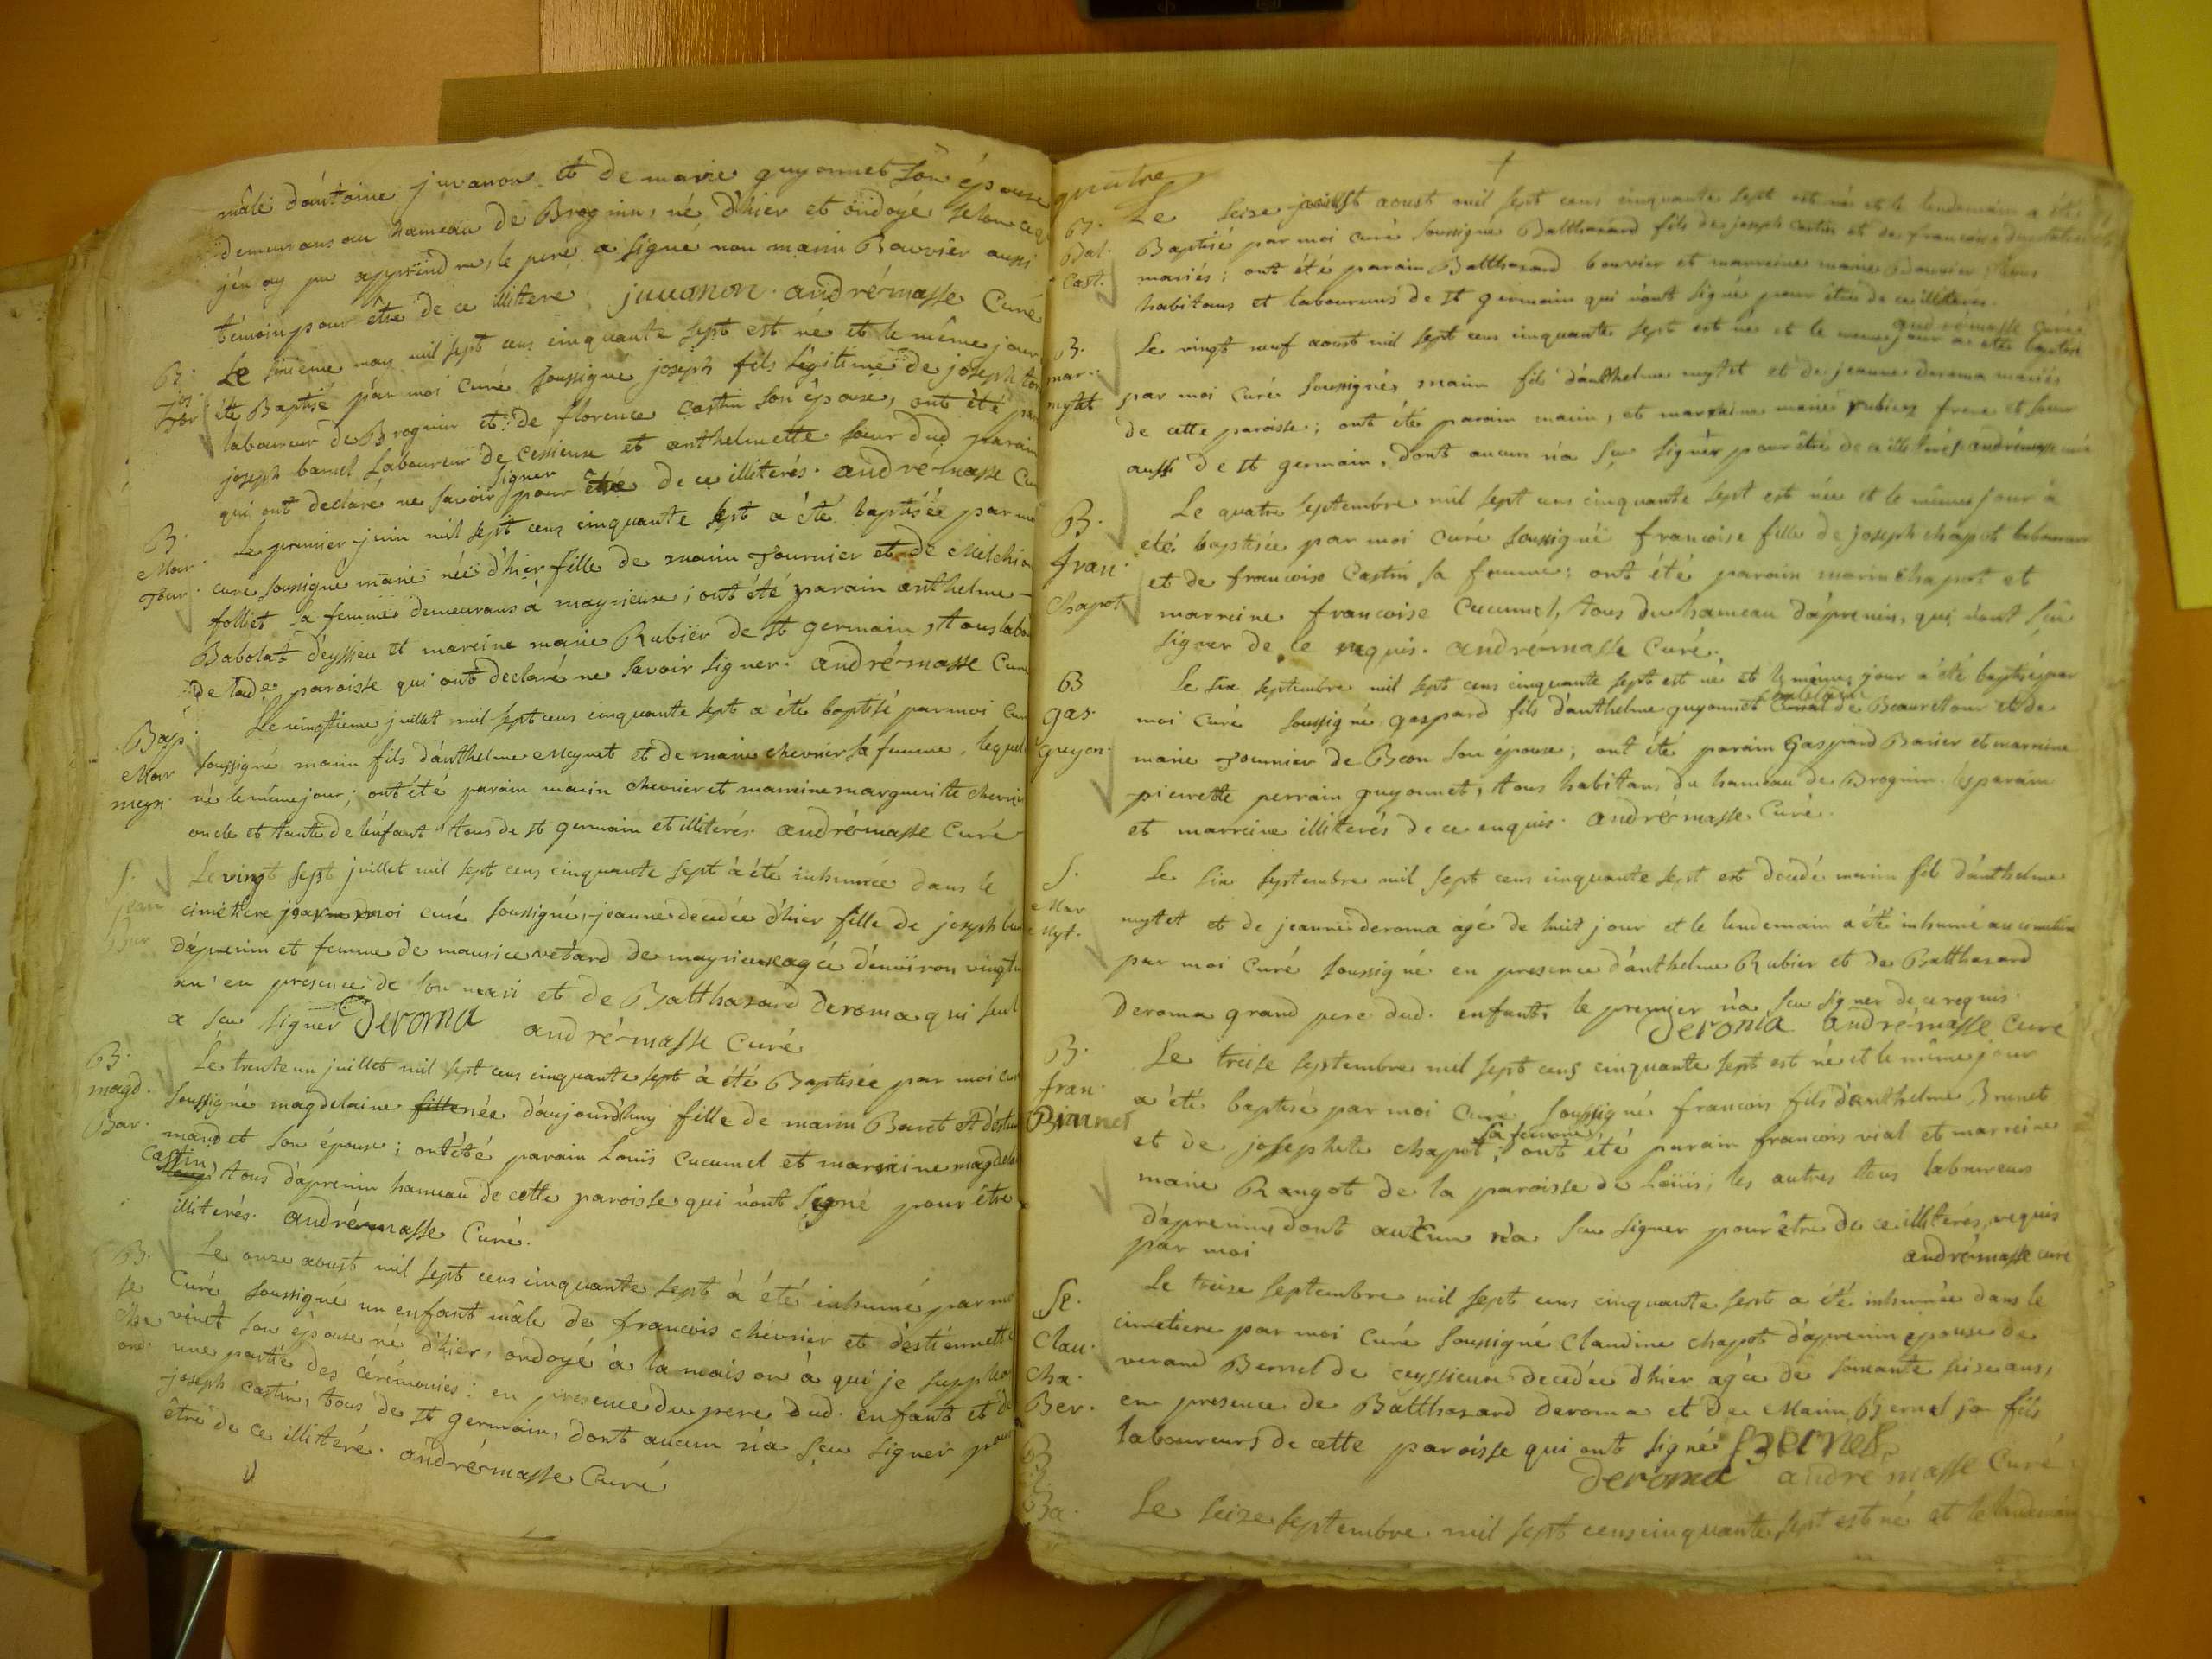 mâle d'antoine juvanon et de marie guyonnet son épouse
demeurans au hameau de Brognin, né d'hier et ondoyé selon ce q
j'en ay pu apprendre, le pere a signé non marin Bouvier aussi
témoin pour être de ce illiteré juvanon andré masse Curé
B.
jos
Le mars mil sept cens cinquante sept est né et le même jour
été Baptisé par moi Curé soussigné joseph fils légitime de joseph
laboureur de Brognin et de florence Castin son épouse, ont été
joseph laboureur de Cessieux et anthelmette soeur dud. parain
signer
qui ont declaré ne savoir pour être de ce illiterés. andré masse Cu
B.
Mar.
four.
Le premier juin mil sept cens cinquante sept a été baptisée par mo
curé soussigné marie née d'hier fille de marin fournier et de Melchio
folliet sa femme demeurans à mayrieux; ont été parain anthelme
Babolat d'eyssieu et mareine marie Rubier de st germain, tous lab
de lad. paroisse qui ont declaré ne savoir signer. andré masse Curé
Bap.
Mar
meyn.
Le vingtieme juillet mil sept cens cinquante sept a été baptisé par moi Cur
soussigné marin fils d'anthelme Meynet et de marie chevrier sa femme, lequel
né le même jour; ont été parain marin chevrier et marreine marguerite chevrie
oncle et tante de l'enfant tous de st germain et illiterés andré masse Curé
S.
jean
Bur
Le vingt sept juillet mil sept cens cinquante sept à été inhumée dans le
cimetiere par moi curé soussigné, jeanne decedée d'hier fille de joseph
d'aprenin et femme de maurice vetard de mayrieux agée d'environ vingt
an en presence de son mari et de Balthazard deroma qui seul
a sçu signer Deroma andré masse Curé
B.
magd.
Bar.
Le trente un juillet mil sept cens cinquante sept à été Baptisée par moi cur
soussigné magdelaine fille née d'aujourd'huy fille de marin Baret et d'estie
mandet son épouse; ont été parain Louis Cucumel et marreine magdel
Castin tous d'aprenin hameau de cette paroisse qui n'ont signé pour être
illiterés. andré masse Curé.
B.
se
Che
ond.
Le onze aoust mil sept cens cinquante sept à été inhumé par mo
Curé soussigné un enfant mâle de francois chevrier et d'estiennette
vinet son épouse né d'hier, ondoyé à la maison à qui je
une partie des cérémonies: en presence du pere dud. enfant et d
joseph castin, tous de st germain, dont aucun n'a sçu signer pour
être de ce illiteré. andré masse Curé
quatre
B.
Bal.
Cast.
Le seize aoust mil sept cens cinquante sept est né et le lendemain a été
Baptisé par moi curé soussigné Balthazard fils de joseph castin et de francoise
mariés; ont été parain Balthazard bouvier et marreine marie Bouvier tous
habitans et laboureurs de st germain qui n'ont signé pour être de ce illiterés.
andré masse Curé
B.
mar.
mytet
Le vingt neuf aoust mil sept cens cinquante sept est né et le meme jour a été baptisé
par moi Curé soussigné, marin fils d'anthelme mytet et de jeanne deroma mariés
de cette paroisse; ont été parain marin, et marreine marie rubier frere et soeur
aussi de st germain, dont aucun n'a sçu signer pour être de ce illiterés andré masse curé
B.
fran.
Chapot
Le quatre septembre mil sept cens cinquante sept est née et le même jour a
été baptisée par moi curé soussigné francoise fille de joseph chapot laboureur
et de francoise Castin sa femme; ont été parain marin chapot et
marreine francoise Cucumel, tous du hameau d'aprenin, qui n'ont sçu
signer de ce requis. andré masse Curé.
B
gas.
guyon.
Le six septembre mil sept cens cinquante sept est né et le même jour a été baptisé par
moi Curé soussigné, gaspard fils d'anthelme guyonnet de Beauretour et de
marie fournier de Beon son épouse; ont été parain Gaspard Barier et marreine
pierrette perrain guyonnet, tous habitans du hameau de Brognin. les parain
et marreine illiterés de ce enquis. andré masse Curé.
S.
Mar
Myt.
Le six septembre mil sept cens cinquante sept est decedé marin fils d'anthelme
mytet et de jeanne deroma agé de huit jour et le lendemain a été inhumé au cimetiere
par moi Curé soussigné en presence d'anthelme Rubier et de Balthazard
Deroma grand pere dud. enfant, le premier n'a sçu signer de ce requis.
Deroma andré masse Curé
B.
fran.
Brunet
Le treise septembre mil sept cens cinquante sept est né et le même jour
a été baptisé par moi Curé soussigné francois fils d'anthelme Brunet
sa femme
et de josephte chapot; ont été parain francois vial et marreine
marie Rangot de la paroisse de Loüis; les autres tous laboureurs
d'aprenin dont aucun n'a sçu signer pour être de ce illiterés, requis
par moi andré masse curé
Se.
Clau.
Cha.
Ber.
Le treise septembre mil sept cens cinquante sept a été inhumée dans le
cimetiere par moi Curé soussigné Claudine chapot d'aprenin epouse de
verand Bernel de ceyssieux decedée d'hier agée de soixante seise ans,
en presence de Balthazard deroma et de Marin Bernel son fils
laboureurs de cette paroisse qui ont signé Bernel
deroma andré masse Curé.
B
Ba.
Le seize septembre mil sept cens cinquante sept est né et le lendemain